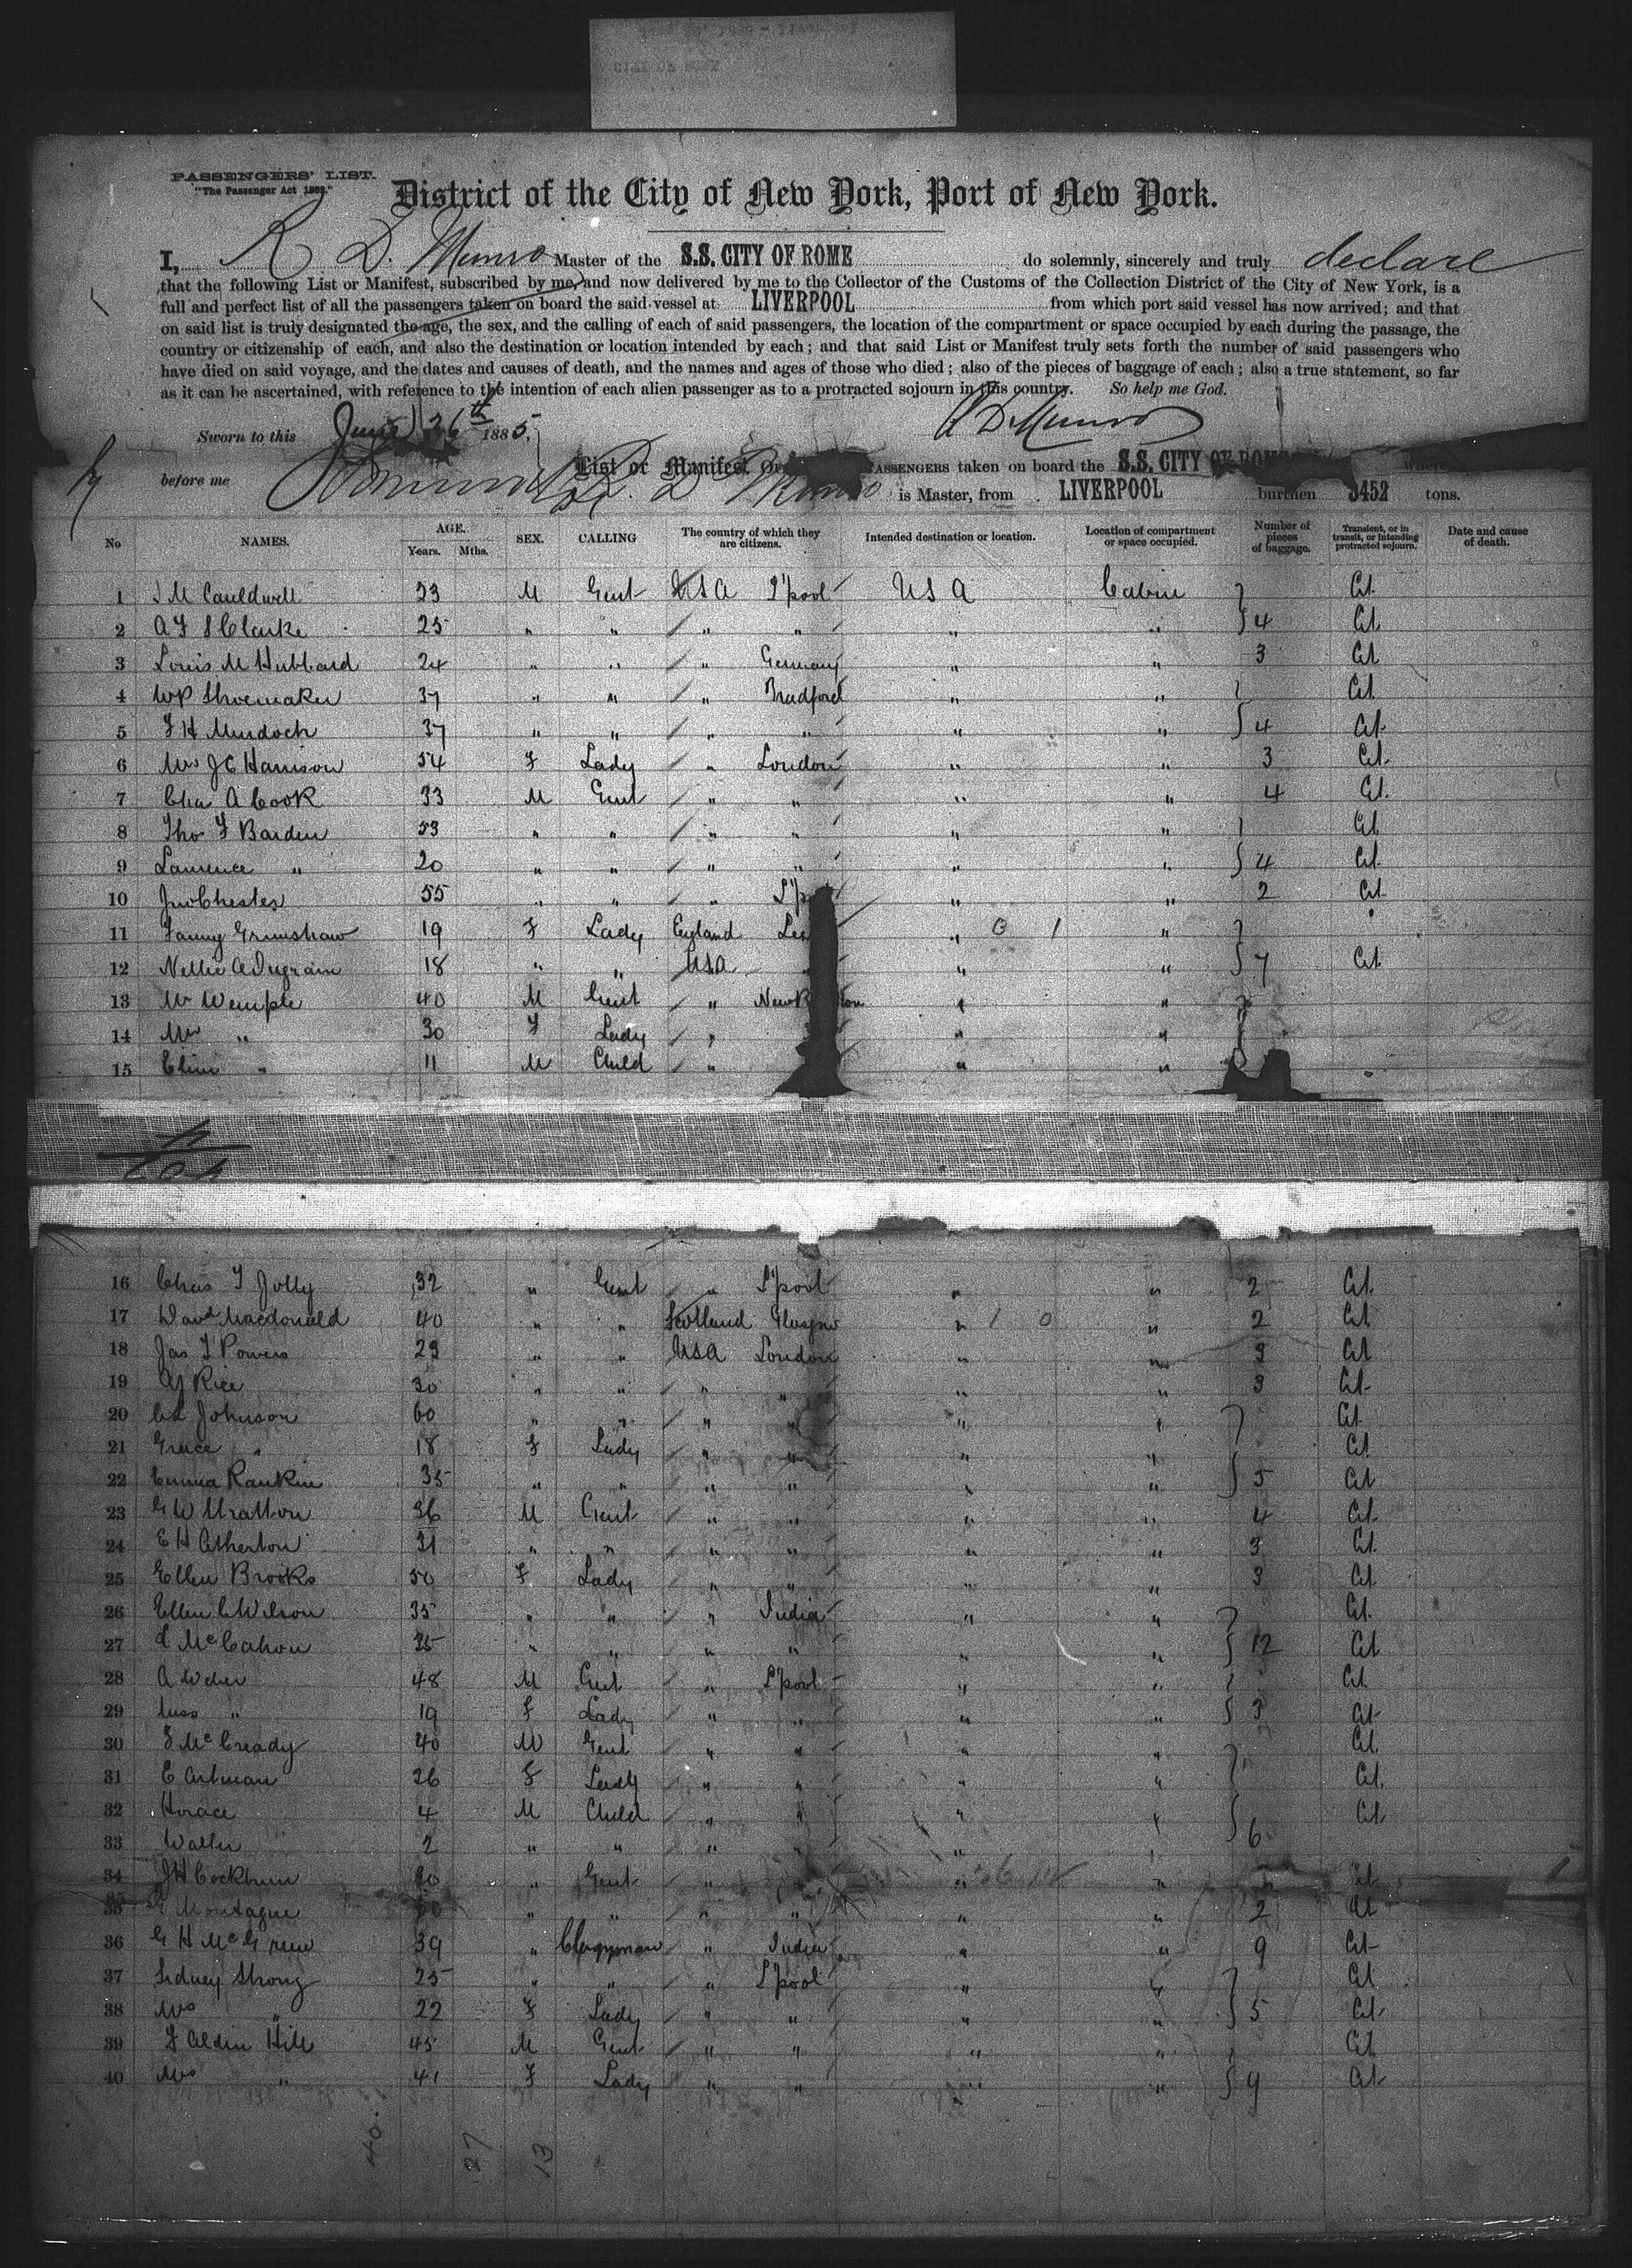 PASSENGERS' LIST.
"The Passenger Act 1882."
District of the City of New York, Port of New York.
I, R D. Munro Master of the S.S. CITY OF ROME do solemnly, sincerely and truly declare
that the following List or Manifest, subscribed by me, and now delivered by me to the Collector of the Customs of the Collection District of the City of New York, is a
full and perfect list of all the passengers taken on board the said vessel at LIVERPOOL from which port said vessel has now arrived; and that
on said list is truly designated the age, the sex, and the calling of each of said passengers, the location of the compartment or space occupied by each during the passage, the
country or citizenship of each, and also the destination or location intended by each; and that said List or Manifest truly sets forth the number of said passengers who
have died on said voyage, and the dates and causes of death, and the names and ages of those who died; also of the pieces of baggage of each; also a true statement, so far
as it can be ascertained, with reference to the intention of each alien passenger as to a protracted sojourn in this country. So help me God.
Sworn to this June 26th 1885, R D Munro
before me
List or Manifest OF PASSENGERS taken on board the S.S. CITY OF ROME where
R. D Munro is Master, from LIVERPOOL burthen 3452 tons.
No NAMES. AGE. Years. Mths. SEX. CALLING The country of which they are citizens. Intended destination or location. Location of compartment or space occupied. Number of pieces of baggage. Transient, or in transit, or intending protracted sojourn. Date and cause of death.
1 M Cauldwell 23 M Gent USA L'pool USA Cabin Cit
2 A F S Clarke 25 " " " " " " 4 Cit
3 Louis M Hubbard 24 " " " Germany " " 3 Cit
4 WP Shoemaker 37 " " " Bradford " " Cit
5 F H Murdoch 37 " " " " " " 4 Cit
6 Mrs J C Harrison 54 F Lady " London " " 3 Cit
7 Chas A Cook 33 M Gent " " " " 4 Cit
8 Tho F Barden 53 " " " " " " Cit
9 Lawrence " 20 " " " " " " 4 Cit
10 Jno Chester 55 " " " L'p " " 2 Cit
11 Fanny Grimshaw 19 F Lady England " 0 1 "
12 Nellie A Ingram 18 " " USA " " 7 Cit
13 Mr Wemple 40 M Gent " New " "
14 Mrs " 30 F Lady " " "
15 " 11 M Child " " "
16 Chas F Jolly 32 " Gent " L'pool " " 2 Cit
17 Davd Macdonald 40 " " Scotland Glasgow " 1 0 " 2 Cit
18 Jas F Powers 29 " " USA London " " 3 Cit
19 AJ Rice 30 " " " " " " 3 Cit
20 Johnson 60 " " " " " " Cit
21 Grace " 18 F Lady " " " " Cit
22 Emma Rankin 35 " " " " " " 5 Cit
23 G W Stratton 36 M Gent " " " " 4 Cit
24 E H Atherton 31 " " " " " " 3 Cit
25 Ellen Brooks 50 F Lady " " " " 3 Cit
26 Ellen C Wilson 35 " " " India " " Cit
27 L McCahon 35 " " " " " " 12 Cit
28 A Weber 48 M Gent " L'pool " " Cit
29 Miss " 19 F Lady " " " " 3 Cit
30 McCready 40 M Gent " " " " Cit
31 E Artman 26 F Lady " " " " Cit
32 Horace 4 M Child " " " " Cit
33 Walter 2 " " " " " " 6
34 J H Cockburn " Gent " " " Cit
35 Montague " " " " " 2 Cit
36 G H McGrew 39 " Clergyman " India " " 9 Cit
37 Sidney Strong 25 " " " L'pool " " Cit
38 Mrs " 22 F Lady " " " " 5 Cit
39 F Alden Hill 45 M Gent " " " " Cit
40 Mrs " 41 F Lady " " " " 9 Cit
40. 27 13